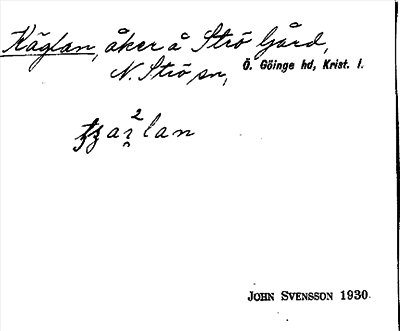 Käglan, åker å Strö Gård,
N. Strö sn, Ö. Göinge hd, Krist. l.
JOHN SVENSSON 1930.